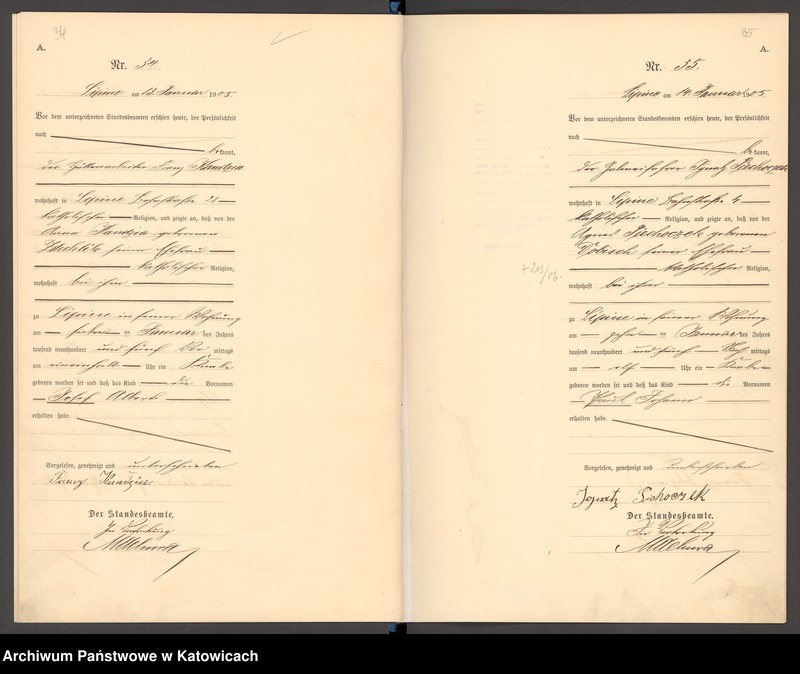 34
A.
Nr. 34
Lipine am 13. Januar 1905.
Vor dem unterzeichneten Standesbeamten erschien heute, der Persönlichkeit
nach
bekannt,
der Hüttenarbeiter Franz
wohnhaft in Lipine Bahnstraße 21
katholischer Religion, und zeigte an, daß von der
Anna geborenen
seiner Ehefrau
katholischer Religion,
wohnhaft bei ihm
zu Lipine in seiner Wohnung
am sieben ten Januar des Jahres
tausend neunhundert und fünf Vor mittags
um Uhr ein Knabe
geboren worden sei und daß das Kind die Vornamen
Josef Albert
erhalten habe.
Vorgelesen, genehmigt und unterschrieben
Franz
Der Standesbeamte.
In Vertretung
35
A.
Nr. 35.
Lipine am 14. Januar 1905.
Vor dem unterzeichneten Standesbeamten erschien heute, der Persönlichkeit
nach
bekannt,
der Ignatz Piechoczek
wohnhaft in Lipine Bahnstraße 4
katholischer Religion, und zeigte an, daß von der
Agnes Piechoczek geborenen
seiner Ehefrau
katholischer Religion,
wohnhaft bei ihm
+ 203/06.
zu Lipine in seiner Wohnung
am zehn ten Januar des Jahres
tausend neunhundert und fünf Nach mittags
um elf Uhr ein Knabe
geboren worden sei und daß das Kind die Vornamen
Paul Johann
erhalten habe.
Vorgelesen, genehmigt und unterschrieben
Ignatz
Der Standesbeamte.
In Vertretung
Archiwum Państwowe w Katowicach